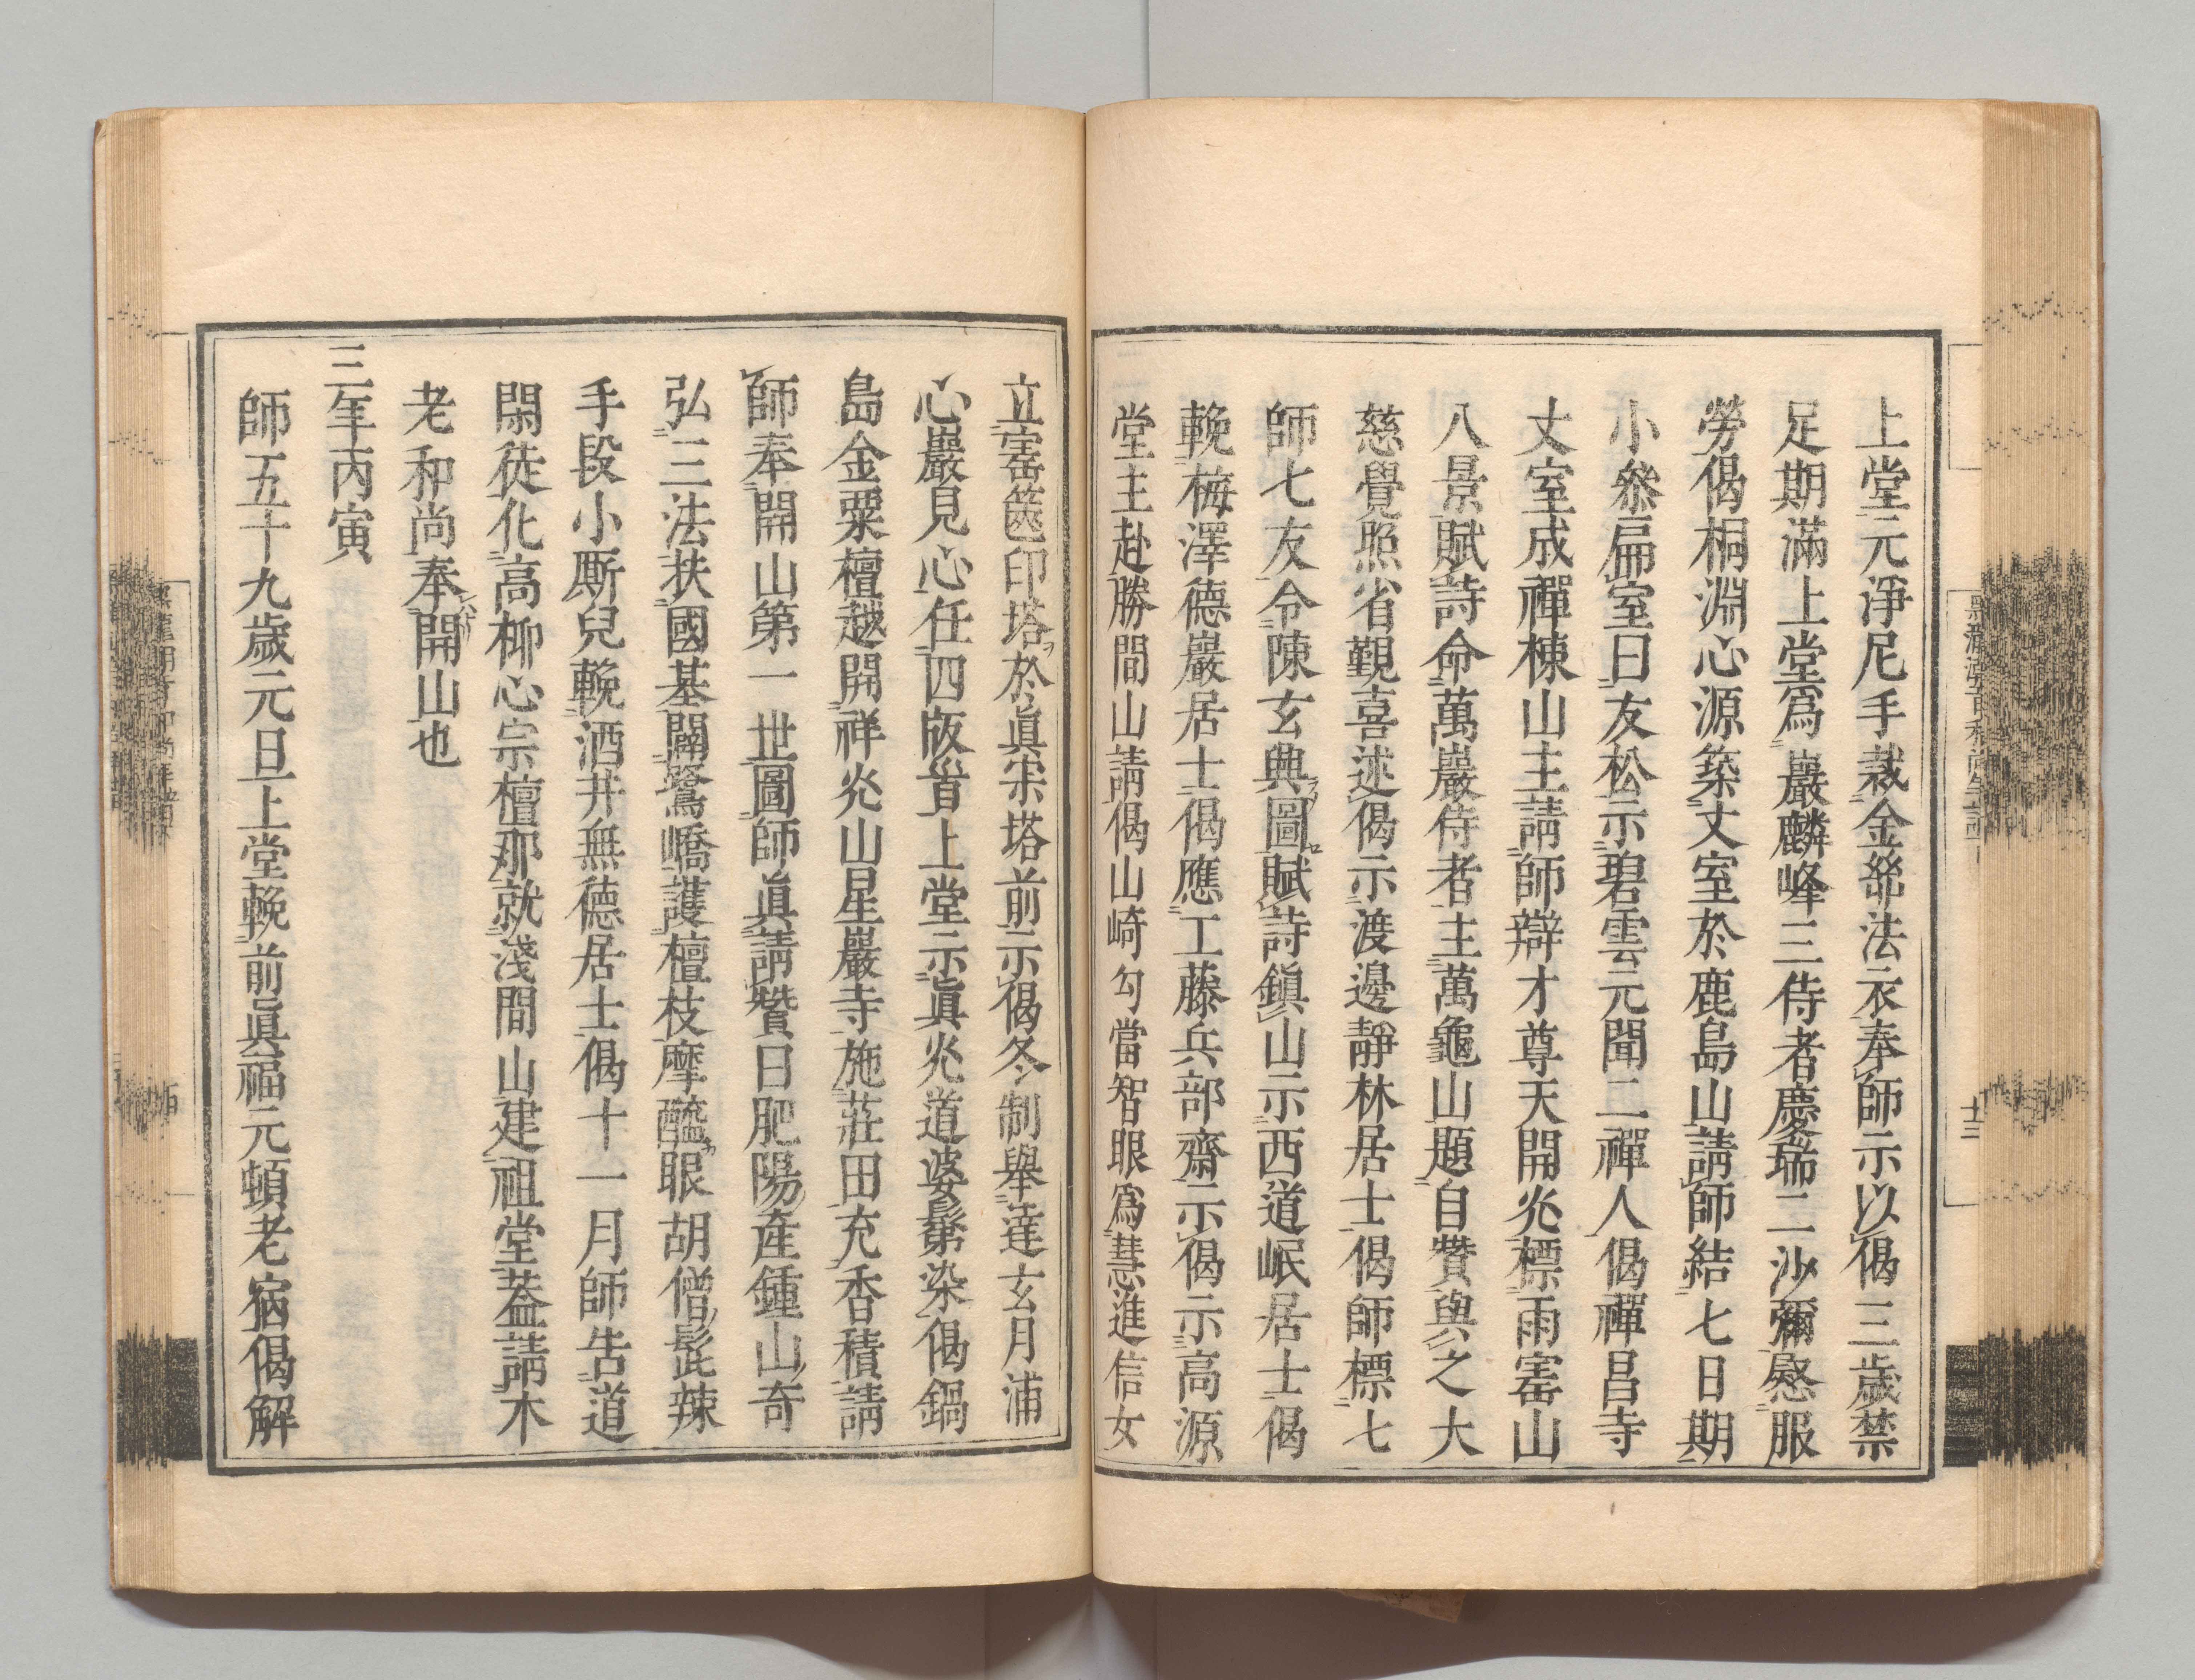 上堂元淨尼手裁金㡧法衣奉師示以偈三歲禁
足期滿上堂爲巖麟峰三侍者慶瑞二沙彌慰服
勞偈桐淵心源築丈室於鹿島山請師結七日期
小叅扁室曰友松示碧雲元聞二禪人偈禪昌寺
丈室成禪棟山主請師辯才尊天開光標雨寳山
八景賦詩命萬巖侍者主萬龜山題自贊與之大
慈覺照省覲喜述偈示渡邊靜林居士偈師標七
師七友令陳玄典圖賦詩鎭山示西道岷居士偈
輓梅澤德巖居士偈應工藤兵部齋示偈示高源
堂主赴勝間山請偈山崎勾當智眼爲慧進信女
立寳篋印塔於眞宗塔前示偈冬制舉達玄月浦
心巖見心任四版首上堂示眞光道婆髴染偈鍋
島金粟檀越開祥光山星巖寺施莊田充香積請
師奉開山第一世圖師眞請贊曰肥陽產鍾山奇
弘三法扶國基闢鷲嶠護檀枝摩醯眼胡僧髭辣
手段小厮兒輓酒井無德居士偈十一月師告道
閑徒化高柳心宗檀那就淺間山建祖堂葢請木
老和尚奉開山也
三年丙寅
師五十九歲元旦上堂輓前眞福元頓老宿偈解